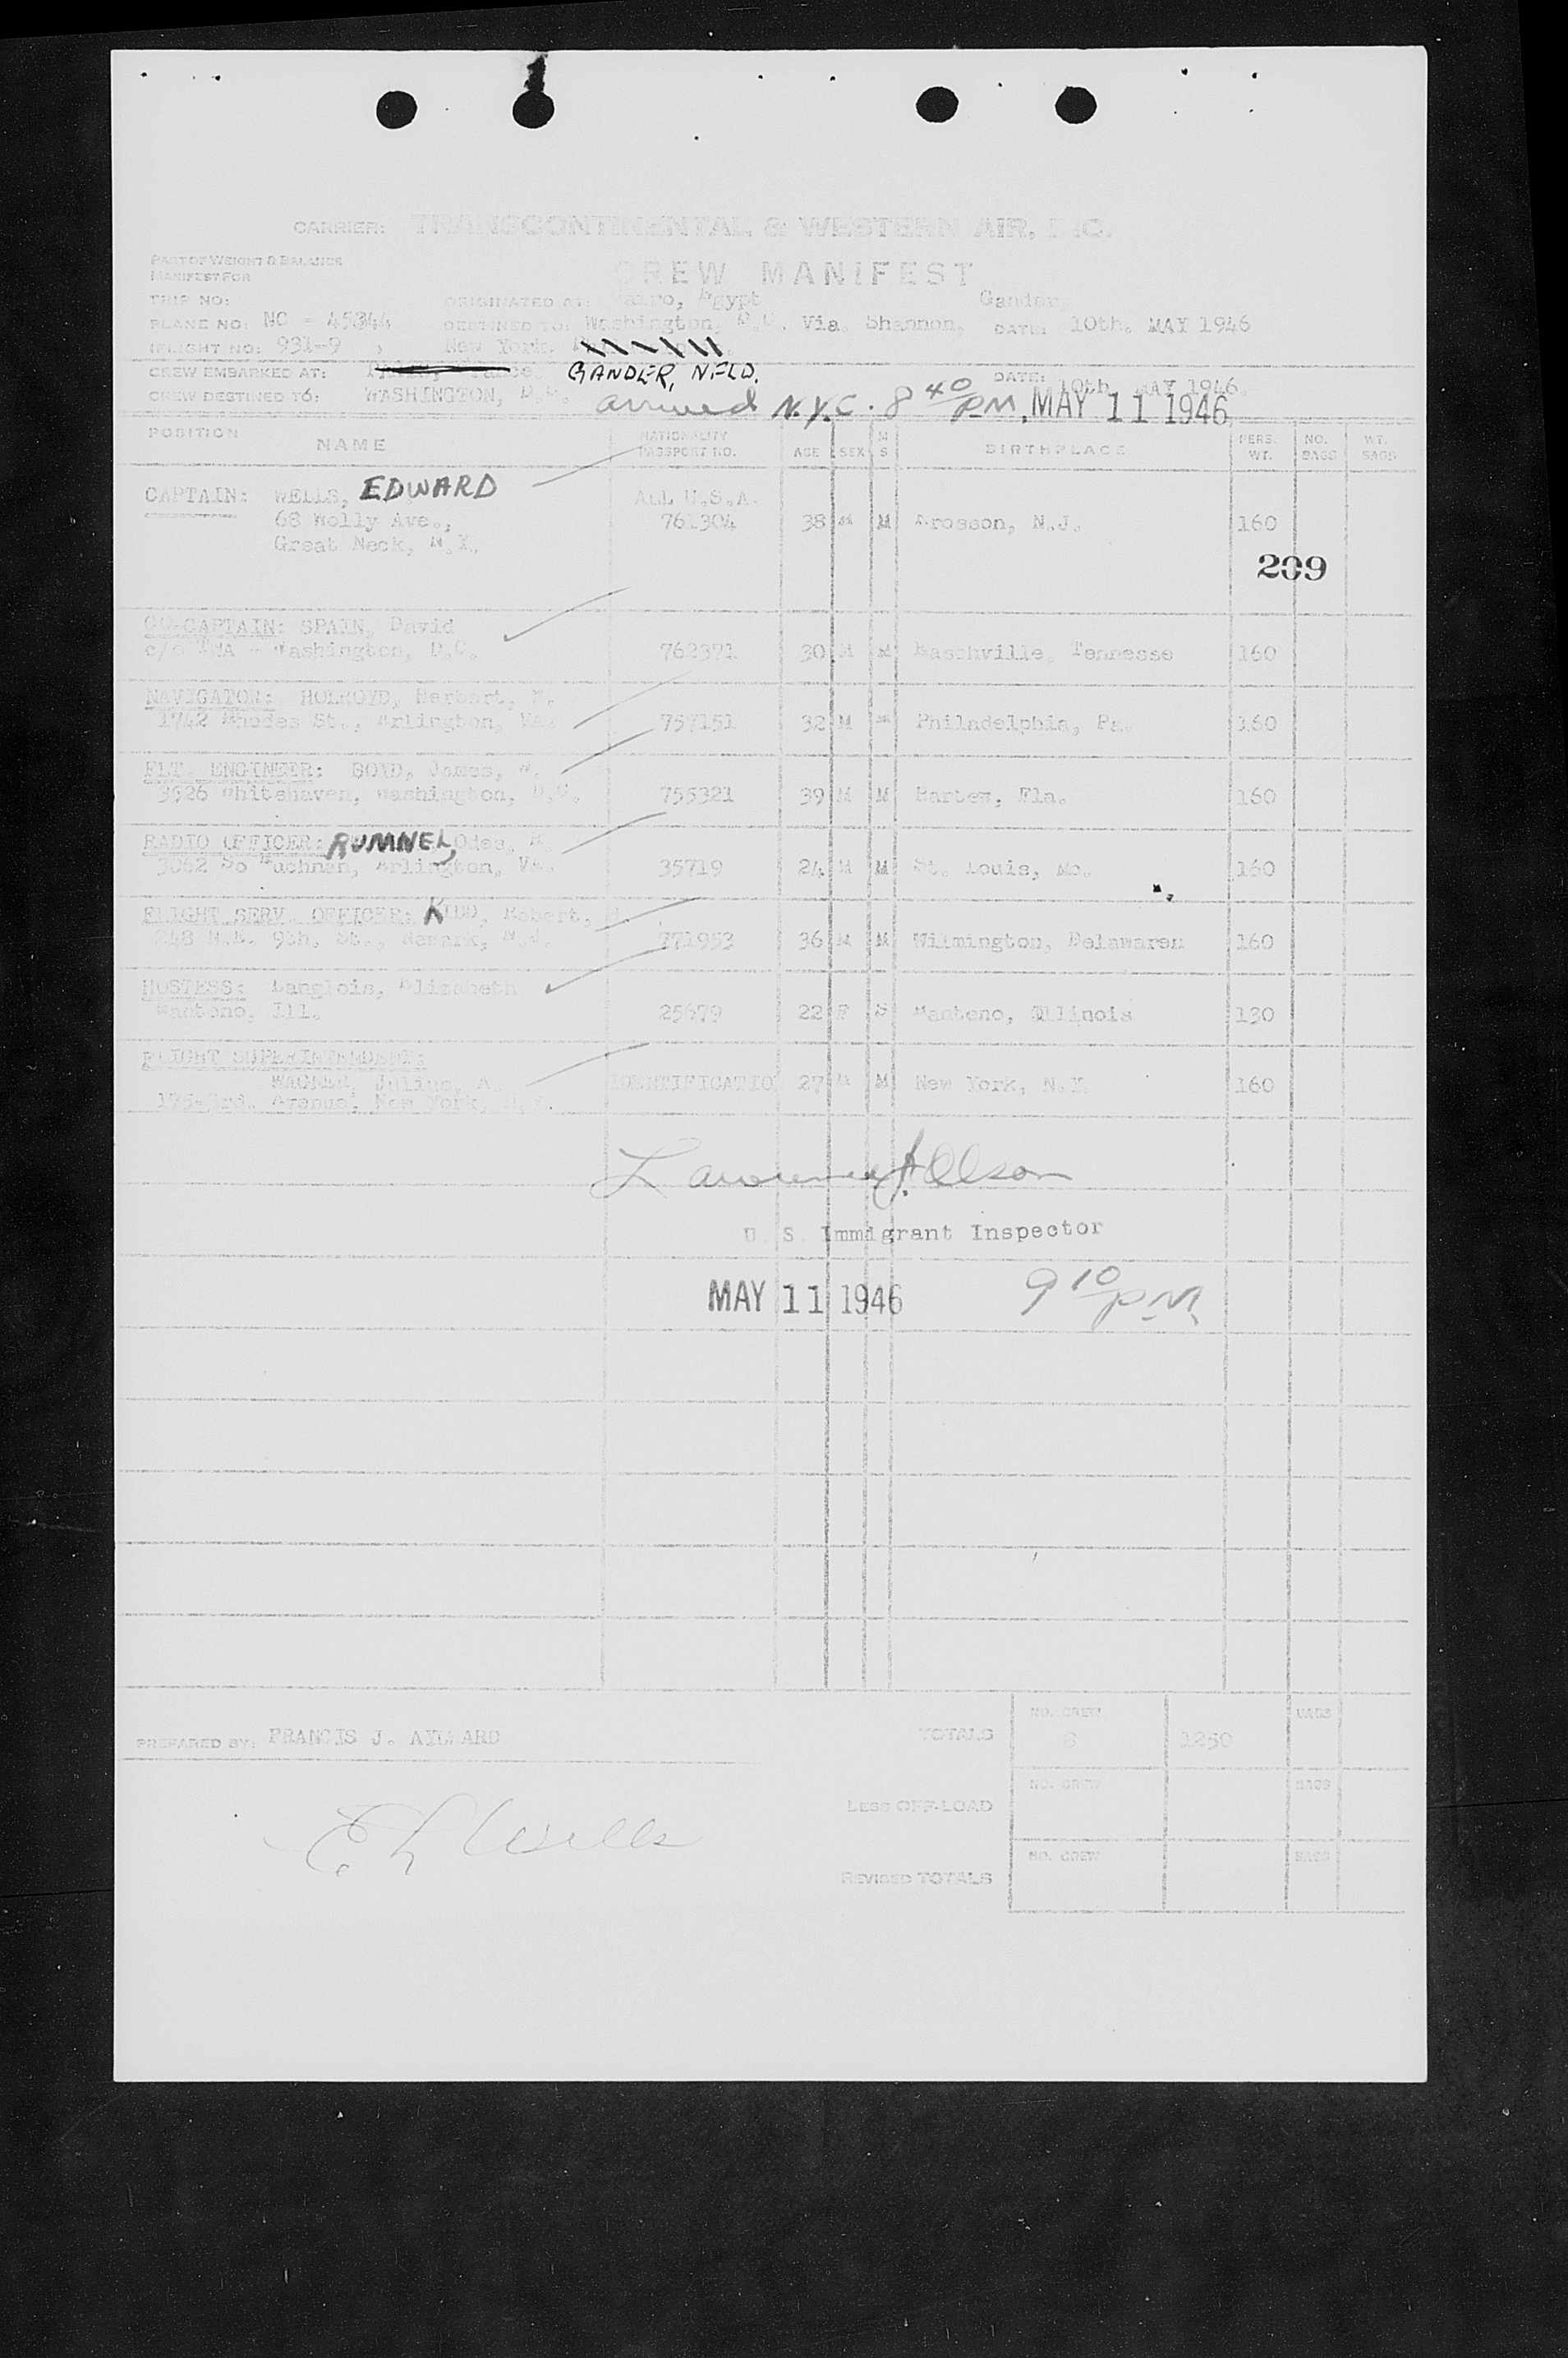 CARRIER: TRANSCONTINENTAL & WESTERN AIR, INC.
PART OF WEIGHT & BALANCE
MANIFEST FOR
CREW MANIFEST
TRIP NO: ORIGINATED AT: Cairo, Egypt Gander,
PLANE NO: NC - 45344 DESTINED TO: Washington, D.C. Via. Shannon, DATE: 10th. MAY 1946
(FLIGHT NO: 931-9 ) New York,
CREW EMBARKED AT: GANDER, NFLD. DATE: 10th. MAY 1946.
CREW DESTINED TO: WASHINGTON, D.C. arrived N.Y.C. 8 40 PM, MAY 11 1946
POSITION NAME NATIONALITY PASSPORT NO. AGE SEX M S BIRTHPLACE PERS. WT. NO. BAGS WT. BAGS
CAPTAIN: WELLS, EDWARD ALL U.S.A.
68 Wolly Ave., 761304 38 M M N.J. 160
Great Neck, N.Y.
209
CO-CAPTAIN: SPAIN, David
c/o TWA - Washington, D.C. 762371 30 M M Naschville, Tennesse 160
NAVIGATOR: HOLROYD, Herbert,
1742 Rhodes St., Arlington, Va. 757151 32 M M Philadelphia, Pa. 160
FLT. ENGINEER: BOYD, James,
3926 Whitehaven, Washington, D.C. 755321 39 M M Bartew, Fla. 160
RADIO OFFICER: RUMNEL, Odes,
So Arlington, Va. 35719 24 M M St. Louis, Mo. 160
FLIGHT SERV. OFFICER: KIDD, Robert,
9th. St., Newark, N.J. 771953 36 M M Wilmington, Delawaren 160
HOSTESS: Langlois, Elizabeth
Manteno, Ill. 25679 22 F S Manteno, Illinois 130
FLIGHT SUPERINTENDENT:
WAGNER, Julius, A. IDENTIFICATIO 27 M M New York, N.Y. 160
Avenue, New York,
Lawrence J. Olson
U. S. Immigrant Inspector
MAY 11 1946 9 10 PM
PREPARED BY: FRANCIS J. AYLWARD TOTALS NO. CREW 8 1250 BAGS
LESS OFF-LOAD NO. CREW BAGS
E L Wells
REVISED TOTALS NO. CREW BAGS